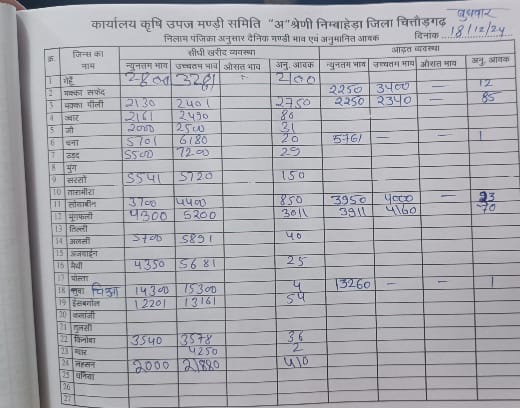 कार्यालय कृषि उपज मण्डी समिति "अ" श्रेणी निम्बाहेड़ा जिला चित्तौड़गढ़
बुधवार
निलाम पंजिका अनुसार दैनिक मण्डी भाव एवं अनुमानित आवक दिनांक 18/12/24
क्र. जिन्स का नाम सीधी खरीद व्यवस्था आढ़त व्यवस्था
न्युनतम भाव उच्चतम भाव औसत भाव अनु. आवक न्युनतम भाव उच्चतम भाव औसत भाव अनु. आवक
1 गेहूँ
2 मक्का सफेद 2250 3400 — 12
3 मक्का पीली 2130 2401 2750 2250 2340 — 85
4 ज्वार 2161 2490 80
5 जौ 2000 2500 31
6 चना 5701 6180 20 5761 — — 1
7 उड़द 5500 7200 29
8 मुंग
9 सरसो 5541 5720 150
10 तारामीरा
11 सोयाबीन 3700 4400 850 3950 4000 — 23
12 मूंगफली 4300 5200 3011 3911 4160 — 70
13 तिल्ली
14 अलसी 5700 5891 40
15 अजवाईन
16 मैथी 4350 5681 25
17 पोस्ता
18 सुवा चिआ 14300 15300 4 13260 — — 1
19 ईसबगोल 12201 13161 54
20 कलोंजी
21 तुलसी
22 किनोवा 3540 3578 36
23 ग्वार 4250 2
24 लहसन 2000 21880 410
25 धनिया
26
27